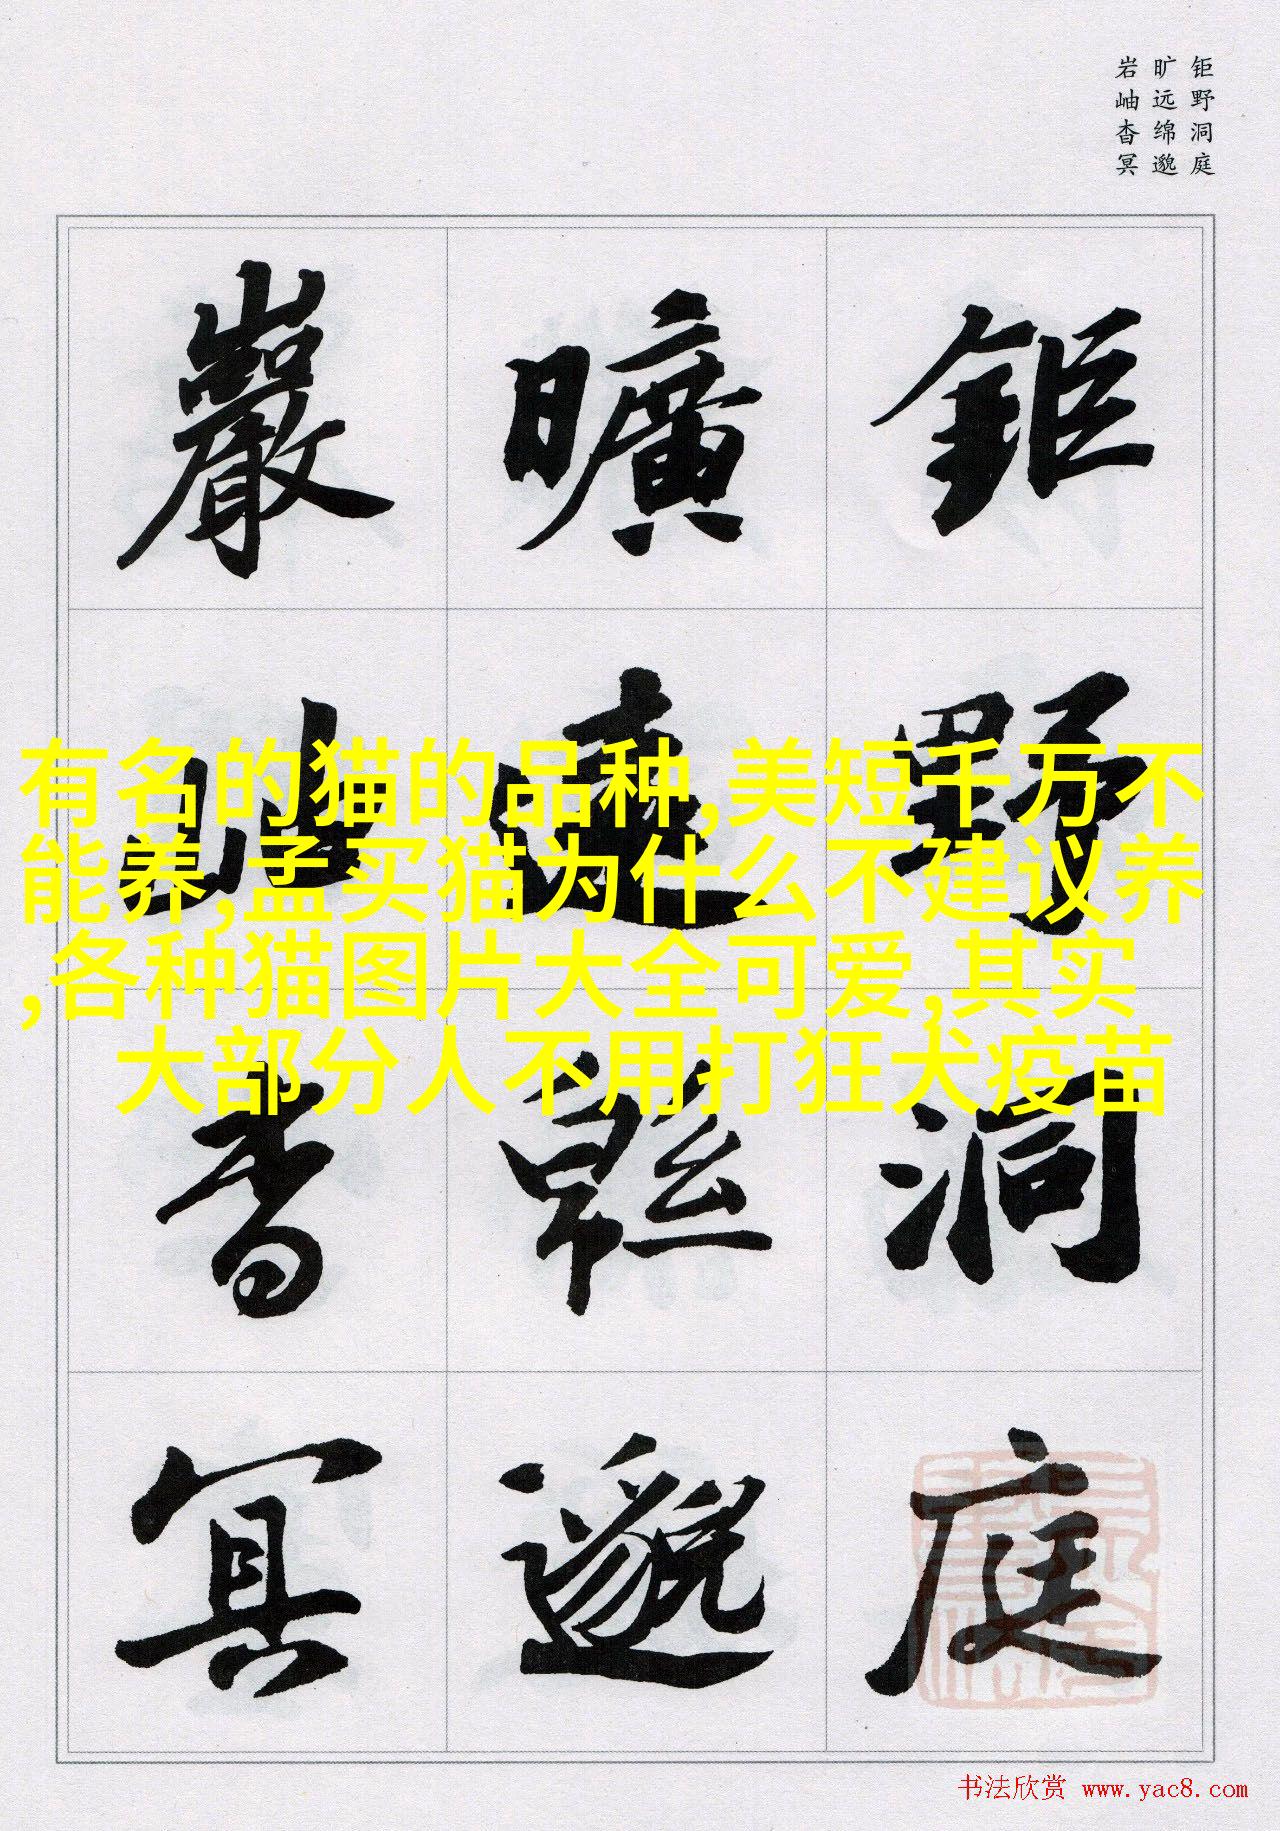 钜野洞庭
旷远绵邈
岩岫杳冥
鉅野洞庭
曠遠緜邈
巖岫杳冥
有名的猫的品种,美短千万不
能养,孟买猫为什么不建议养
,各种猫图片大全可爱,其实
大部分人不用打狂犬疫苗
书法欣赏 www.yac8.com